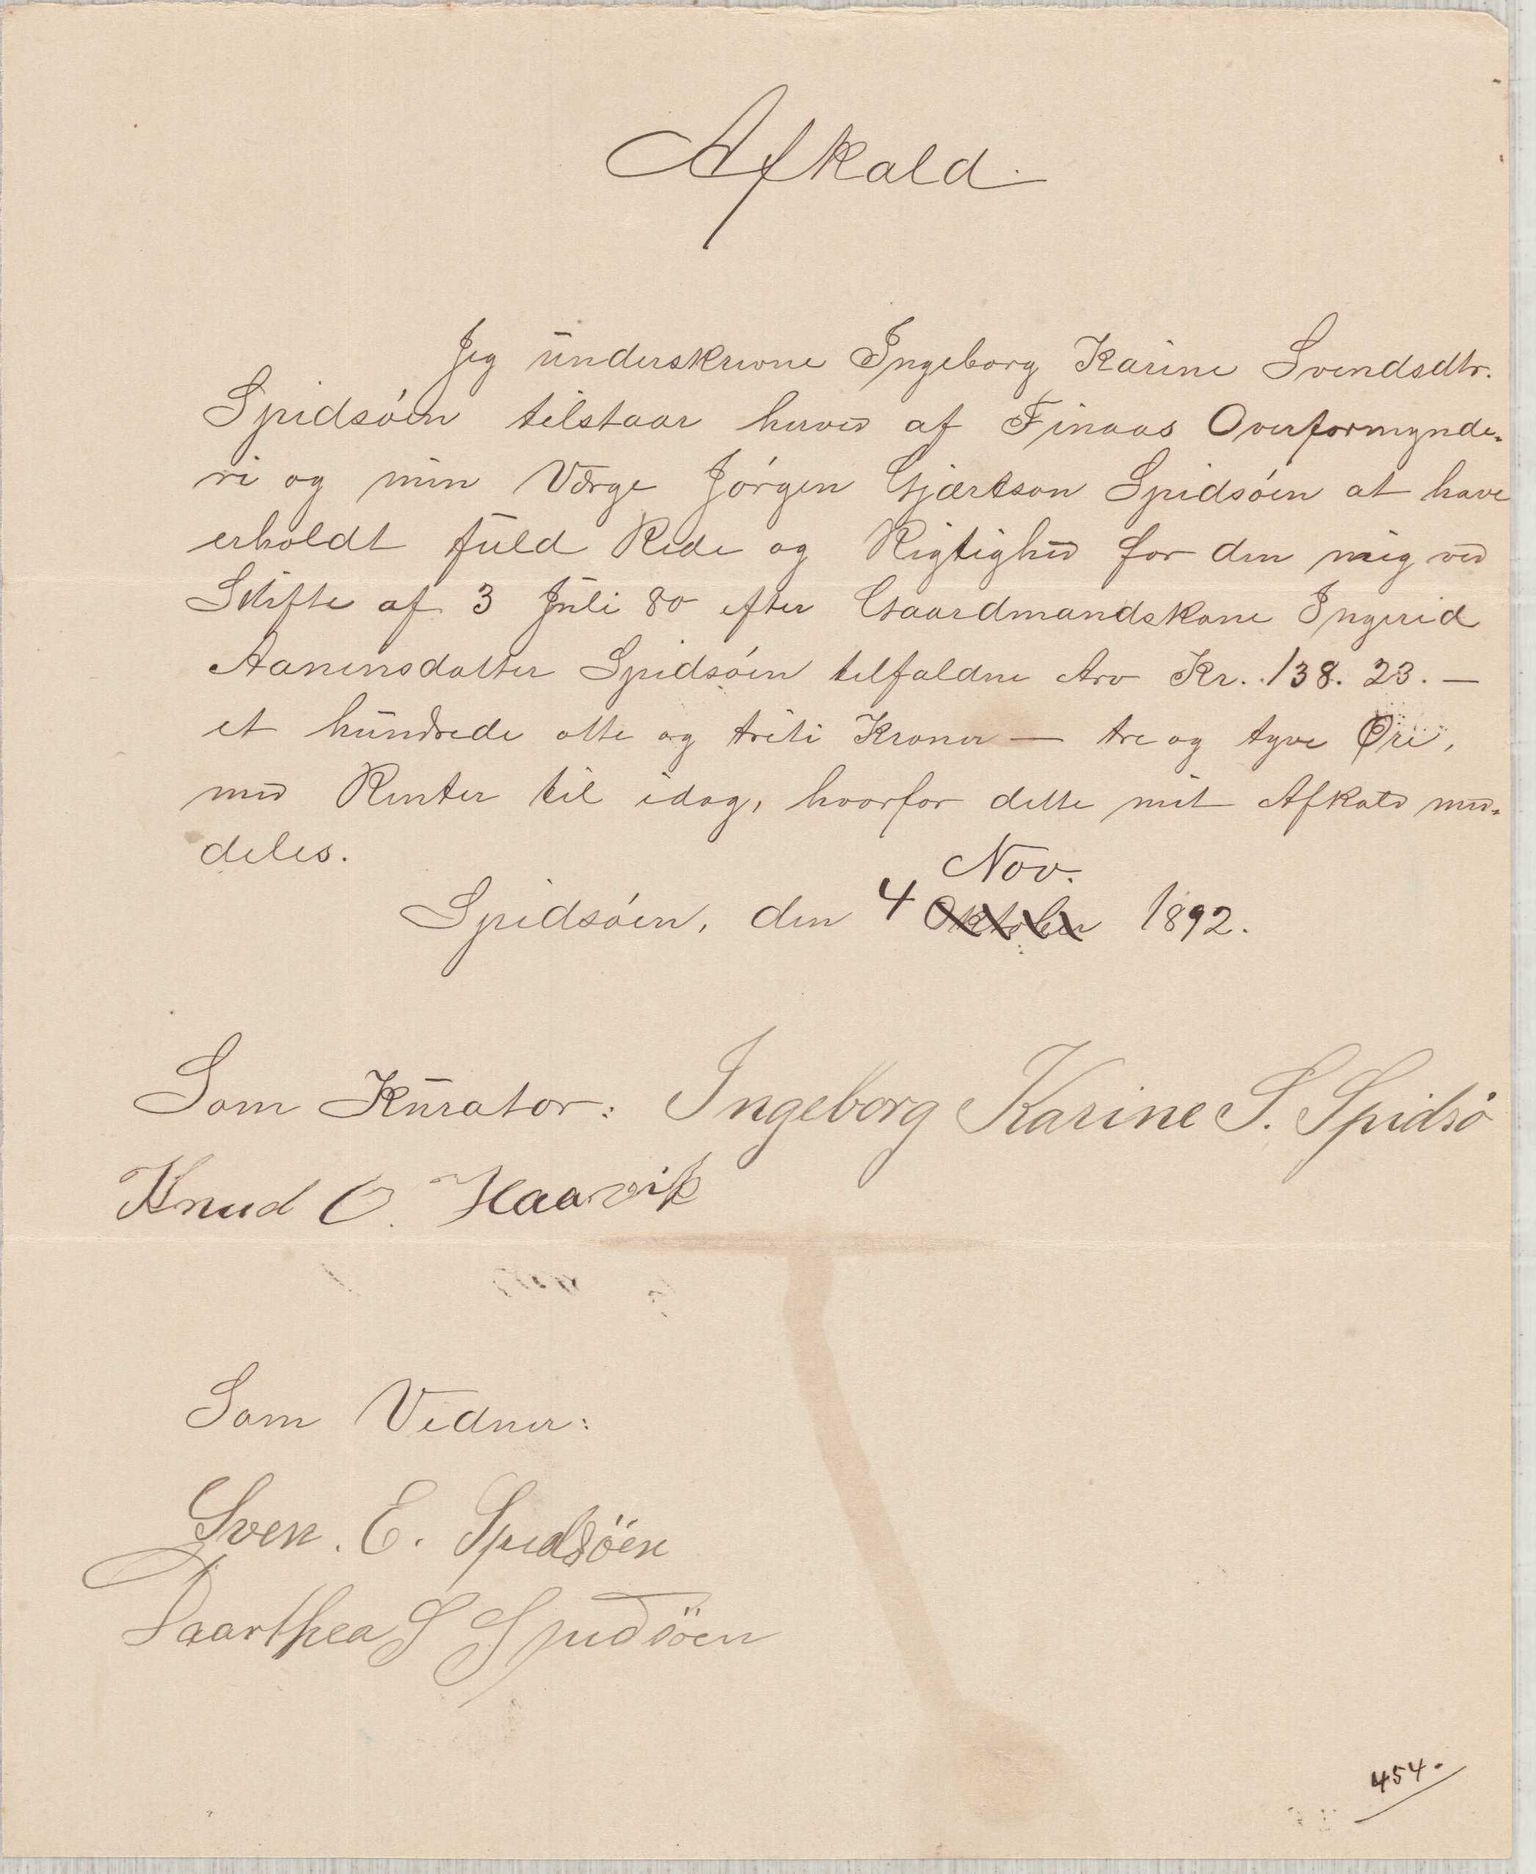 Afkald.
Jeg underskrevne Ingeborg Karine Svendsdtr.
Spidsøen tilstaar herved af Finaas Overformynde-
ri og min Værge Jørgen Gjertson Spidsøen at have
erholdt fuld Rede og Rigtighed for den mig ved
Skifte af 3 Juli 80 efter Gaardmandskone Ingerid
Aanensdatter Spidsøen tilfaldne Arv Kr. 138. 23. —
et hundrede otte og triti Kroner — tre og tyve Øre,
med Renter til idag, hvorfor dette mit Afkald med-
deles.
Nov.
Spidsøen, den 4 Oktober 1892.
Som Kurator: Ingeborg Karine S. Spidsø
Knud O. Haavik
Som Vidner:
Sven. E. Spidsöen
Daarthea S Spidsöen
454.